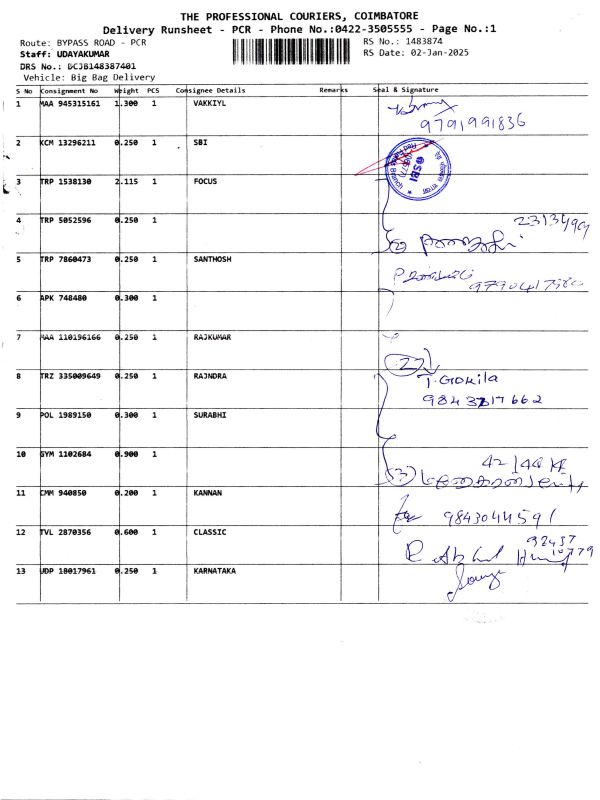 THE PROFESSIONAL COURIERS, COIMBATORE
Delivery Runsheet - PCR - Phone No.:0422-3505555 - Page No.:1
Route: BYPASS ROAD - PCR
RS No.: 1483874
Staff: UDAYAKUMAR
RS Date: 02-Jan-2025
DRS No.: DCJB148387401
Vehicle: Big Bag Delivery
S No Consignment No Weight PCS Consignee Details Remarks Seal & Signature
1 MAA 945315161 1.300 1 VAKKIYL
9791991836
2 KCM 13296211 0.250 1 SBI
SBI
3 TRP 1538130 2.115 1 FOCUS
4 TRP 5052596 0.250 1
5 TRP 7860473 0.250 1 SANTHOSH
6 APK 748480 0.300 1
7 MAA 110196166 0.250 1 RAJKUMAR
22
8 TRZ 335009649 0.250 1 RAJNDRA
T. Gokila
9843217662
9 POL 1989150 0.300 1 SURABHI
10 GYM 1102684 0.900 1
3
11 CMM 940850 0.200 1 KANNAN
9843044591
12 TVL 2870356 0.600 1 CLASSIC
13 UDP 18017961 0.250 1 KARNATAKA